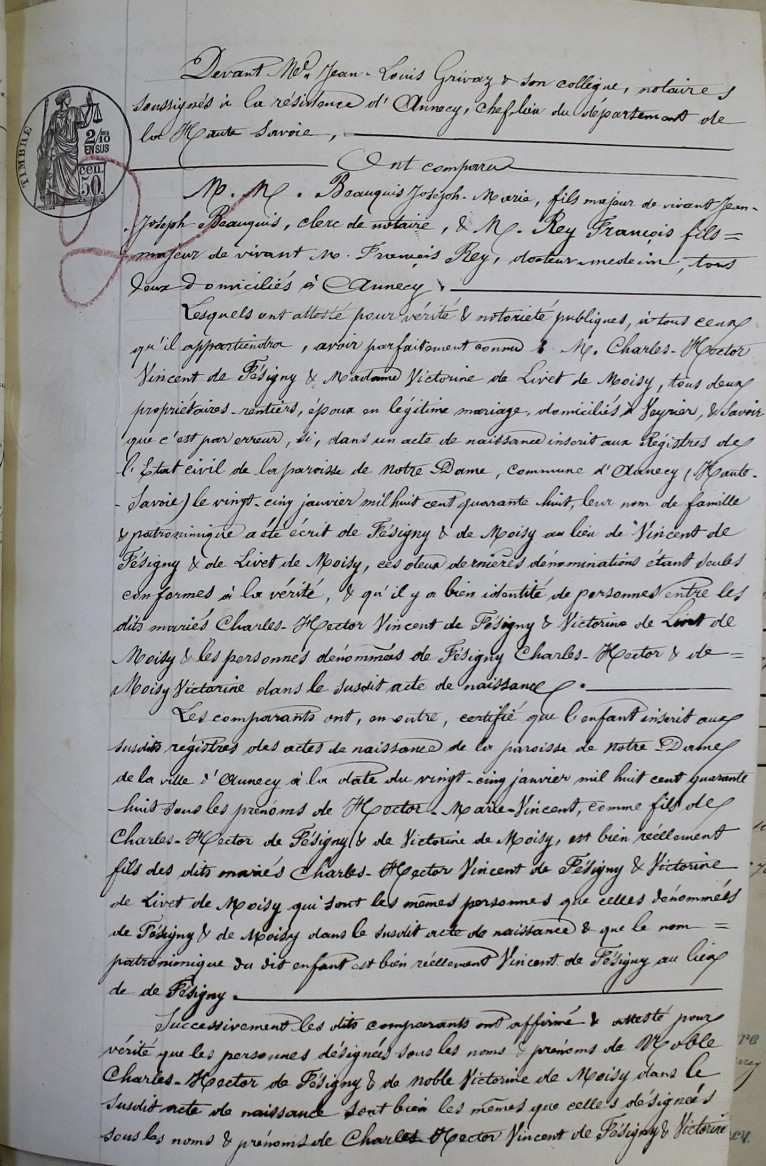 TIMBRE
2/10
EN SUS
50 cen
Devant Me. Jean-Louis Grivaz & son collègue, notaires
soussignés à la résidence d'Annecy, chef-lieu du département de
la Haute Savoie,
Ont comparu
M. M. Beauquis Joseph-Marie, fils majeur de vivant Jean-
Joseph Beauquis, clerc de notaire, & M. Rey François fils=
majeur de vivant M. François Rey, docteur-medecin, tous
deux domiciliés à Annecy.
Lesquels ont attesté pour vérité & notorieté publiques, à tous ceux
qu'il appartiendra, avoir parfaitement connu M. Charles-Hector
Vincent de Fésigny & Madame Victorine de Livet de Moisy, tous deux
propriétaires-rentiers, époux en légitime mariage, domiciliés à Veyrier, & savoir
que c'est par erreur, si, dans un acte de naissance inscrit aux Régistres de
l'Etat civil de la paroisse de Notre Dame, commune d'Annecy (Haute-
-Savoie) le vingt-cinq janvier mil huit cent quarante huit, leur nom de famille
& patronimique a été écrit de Fésigny & de Moisy au lieu de Vincent de
Fésigny & de Livet de Moisy, ces deux dernières dénominations étant seules
conformes à la vérité, & qu'il y a bien identité de personnes entre les
dits mariés Charles-Hector Vincent de Fésigny & Victorine de Livet de
Moisy & les personnes dénommées de Fésigny Charles-Hector & de=
Moisy Victorine dans le susdit acte de naissance.
Les comparants ont, en outre, certifié que l'enfant inscrit aux
susdits régistres des actes de naissance de la paroisse de Notre Dame
de la ville d'Annecy à la date du vingt-cinq janvier mil huit cent quarante
huit sous les prénoms de Hector-Marie-Vincent, comme fils de
Charles-Hector de Fésigny & de Victorine de Moisy, est bien réellement
fils des dits mariés Charles-Hector Vincent de Fésigny & Victorine
de Livet de Moisy qui sont les mêmes personnes que celles dénommées
de Fésigny & de Moisy dans le susdit acte de naissance & que le nom=
patronimique du dit enfant est bien réellement Vincent de Fésigny au lieu
de de Fésigny.
Successivement les dits comparants ont affirmé & attesté pour
vérité que les personnes désignées sous les noms & prénoms de Noble
Charles-Hector de Fésigny & de noble Victorine de Moisy dans le
susdit acte de naissance sont bien les mêmes que celles désignées
sous les noms & prénoms de Charles Hector Vincent de Fésigny & Victorine